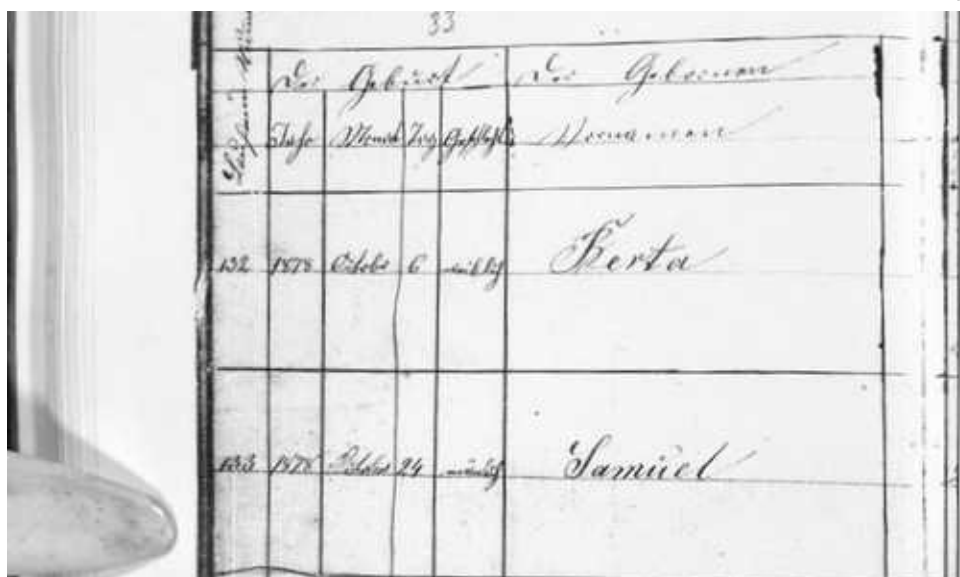 33
Laufende
Der Geburt Der Gebornen
Jahr Monat Tag Geschlecht Vornamen
132 1878 October 6 weiblich Berta
133 1878 October 24 männlich Samuel